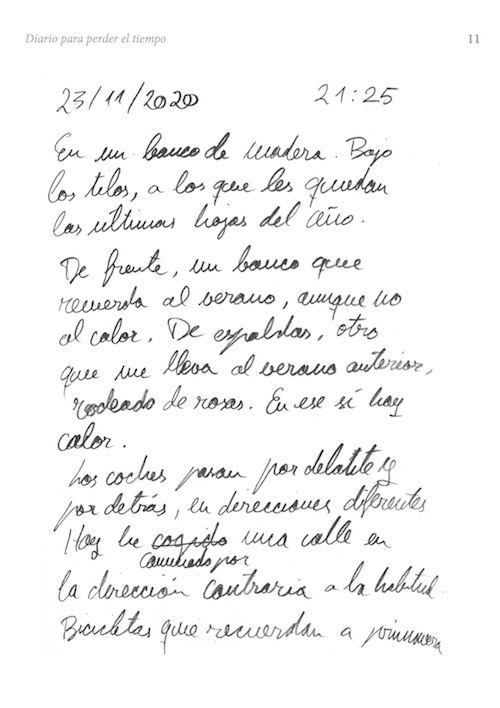 Diario para perder el tiempo 11
23/11/2020 21:25
En un banco de madera. Bajo
los tilos, a los que les quedan
las ultimas hojas del año.
De frente, un banco que
recuerda al verano, aunque no
al calor. De espaldas, otro
que me lleva al verano anterior,
rodeado de rosas. En ese sí hay
calor.
Los coches pasan por delante y
por detrás, en direcciones diferentes
Hoy he cogido una calle en
Caminado por
la dirección contraria a la habitual.
Bicicletas que recuerdan a primavera